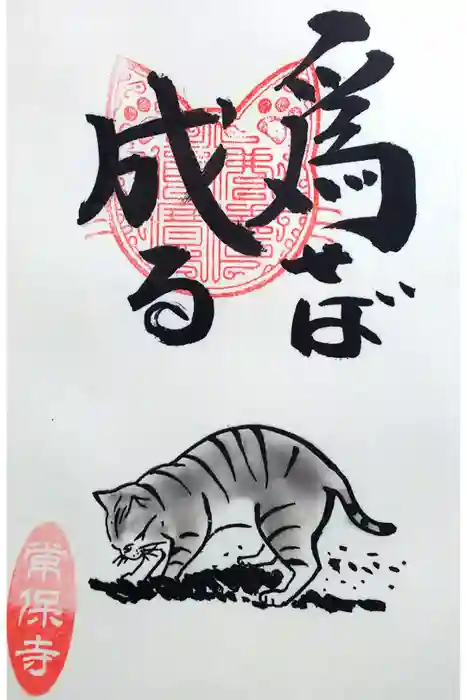 為せば
成る
常保寺